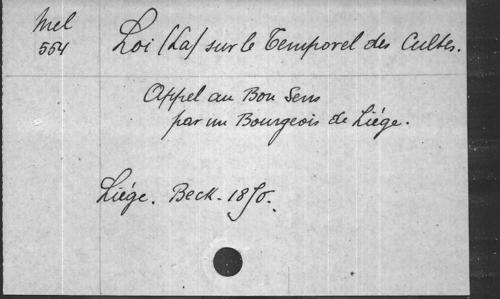 Mel
554
Loi (La) sur le Temporel des Cultes.
Appel au Bon Sens
par un Bourgeois de Liége.
Liége. Beck - 1850.